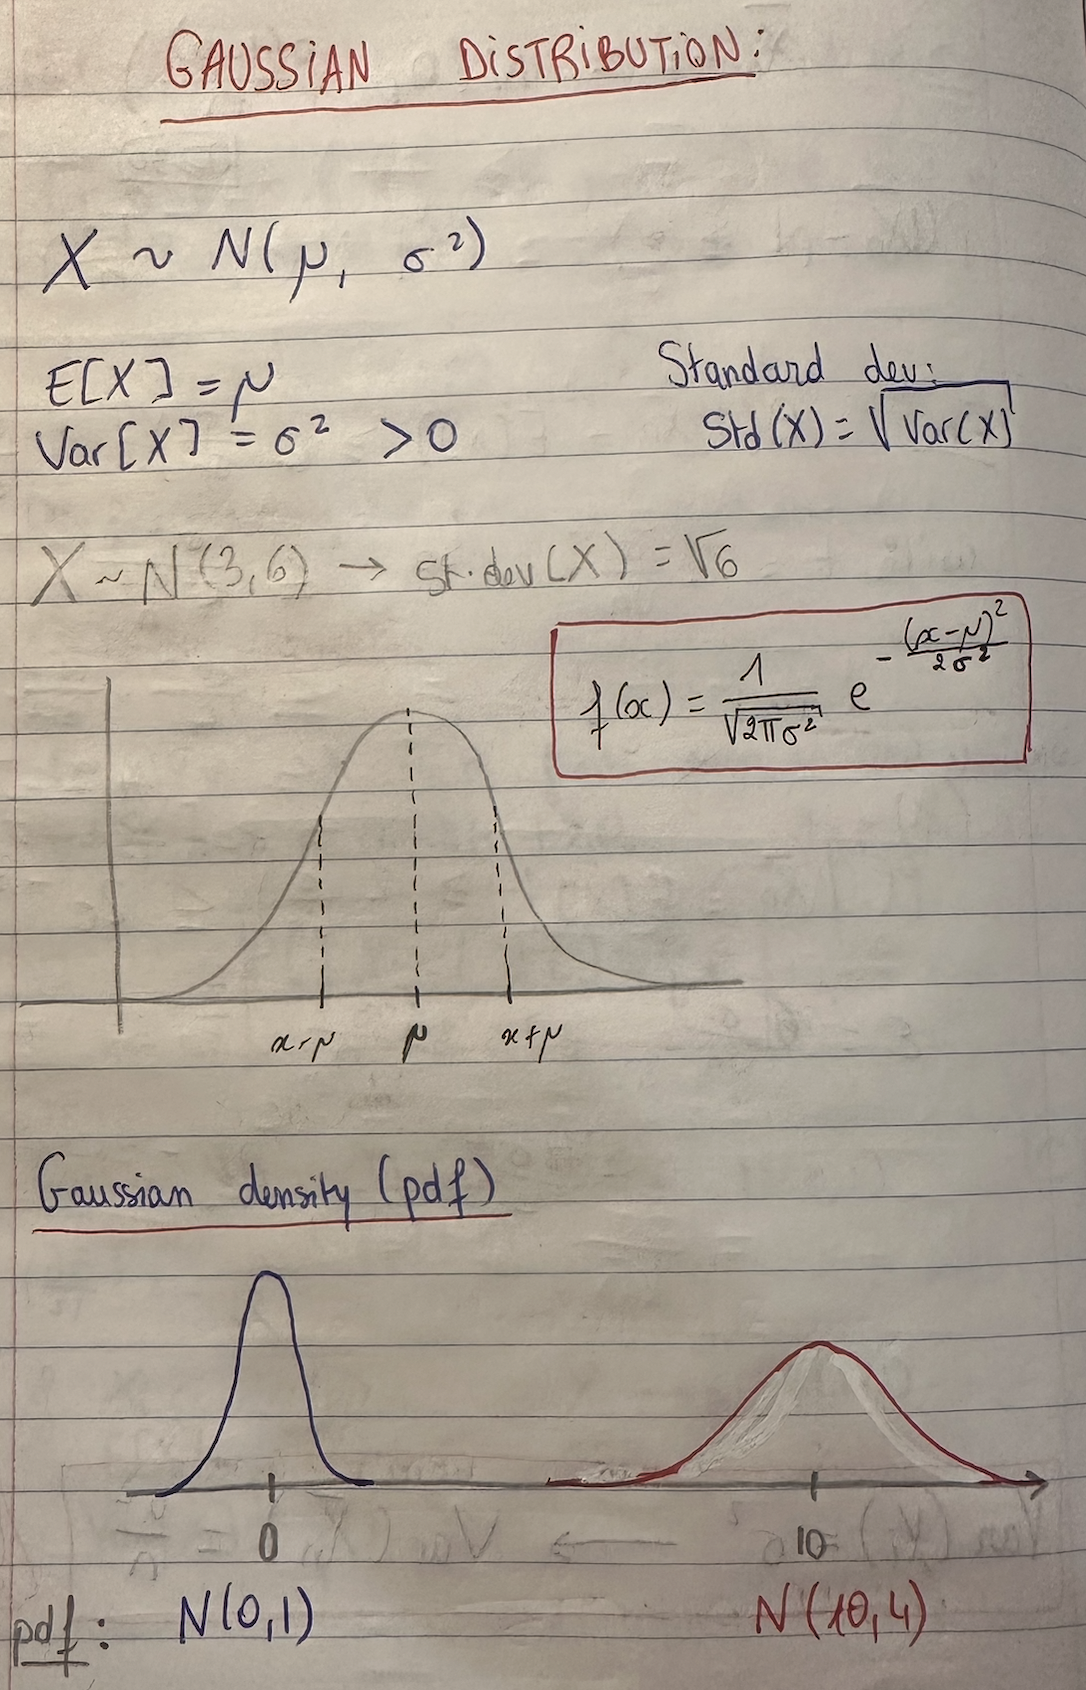 GAUSSIAN DISTRIBUTION:
X ~ N(μ, σ²)
E[X] = μ
Var[X] = σ² >0
Standard dev:
Std(X) = √Var(X)
X ~ N(3,6) → st.dev(X) = √6
f(x) = 1/√2πσ² e^-(x-μ)²/2σ²
x-μ μ x+μ
Gaussian density (pdf)
0 10
pdf: N(0,1) N(10,4)